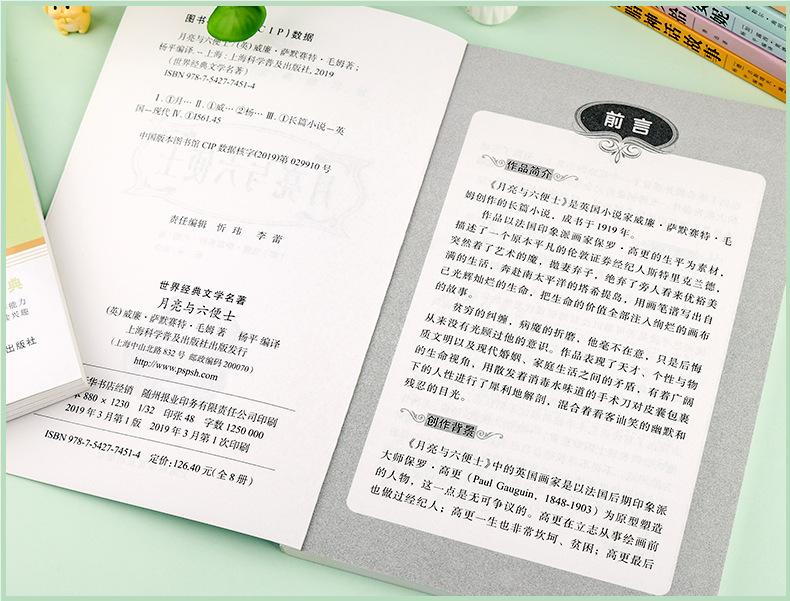 CIP)数据
月亮与六便士/(英)威廉·萨默赛特·毛姆著;
杨平编译.—上海:上海科学普及出版社,2019
(世界经典文学名著)
ISBN 978-7-5427-7451-4
Ⅰ.①月… Ⅱ.①威…②杨… Ⅲ.①长篇小说—英
国—现代 Ⅳ.①I561.45
中国版本图书馆 CIP 数据核字(2019)第 029910 号
责任编辑 忻 玮 李 蕾
世界经典文学名著
月亮与六便士
(英)威廉·萨默赛特·毛姆 著 杨平 编译
上海科学普及出版社出版发行
(上海中山北路 832 号 邮政编码 200070)
http://www.pspsh.com
华书店经销 随州报业印务有限责任公司印刷
880×1230 1/32 印张 48 字数 1250 000
2019 年 3 月第 1 版 2019 年 3 月第 1 次印刷
ISBN 978-7-5427-7451-4 定价:126.40 元(全 8 册)
前言
作品简介
《月亮与六便士》是英国小说家威廉·萨默赛特·毛
姆创作的长篇小说,成书于 1919 年。
作品以法国印象派画家保罗·高更的生平为素材,
描述了一个原本平凡的伦敦证券经纪人斯特里克兰德,
突然着了艺术的魔,抛妻弃子,绝弃了旁人看来优裕美
满的生活,奔赴南太平洋的塔希提岛,用画笔谱写出自
己光辉灿烂的生命,把生命的价值全部注入绚烂的画布
的故事。
贫穷的纠缠,病魔的折磨,他毫不在意,只是后悔
从来没有光顾过他的意识。作品表现了天才、个性与物
质文明以及现代婚姻、家庭生活之间的矛盾,有着广阔
的生命视角,用散发着消毒水味道的手术刀对皮囊包裹
下的人性进行了犀利地解剖,混合着看客讪笑的幽默和
残忍的目光。
创作背景
《月亮与六便士》中的英国画家是以法国后期印象派
大师保罗·高更(Paul Gauguin, 1848-1903)为原型塑造
的人物,这一点是无可争议的。高更在立志从事绘画前
也做过经纪人;高更一生也非常坎坷、贫困;高更最后
典
出版社
神话故事